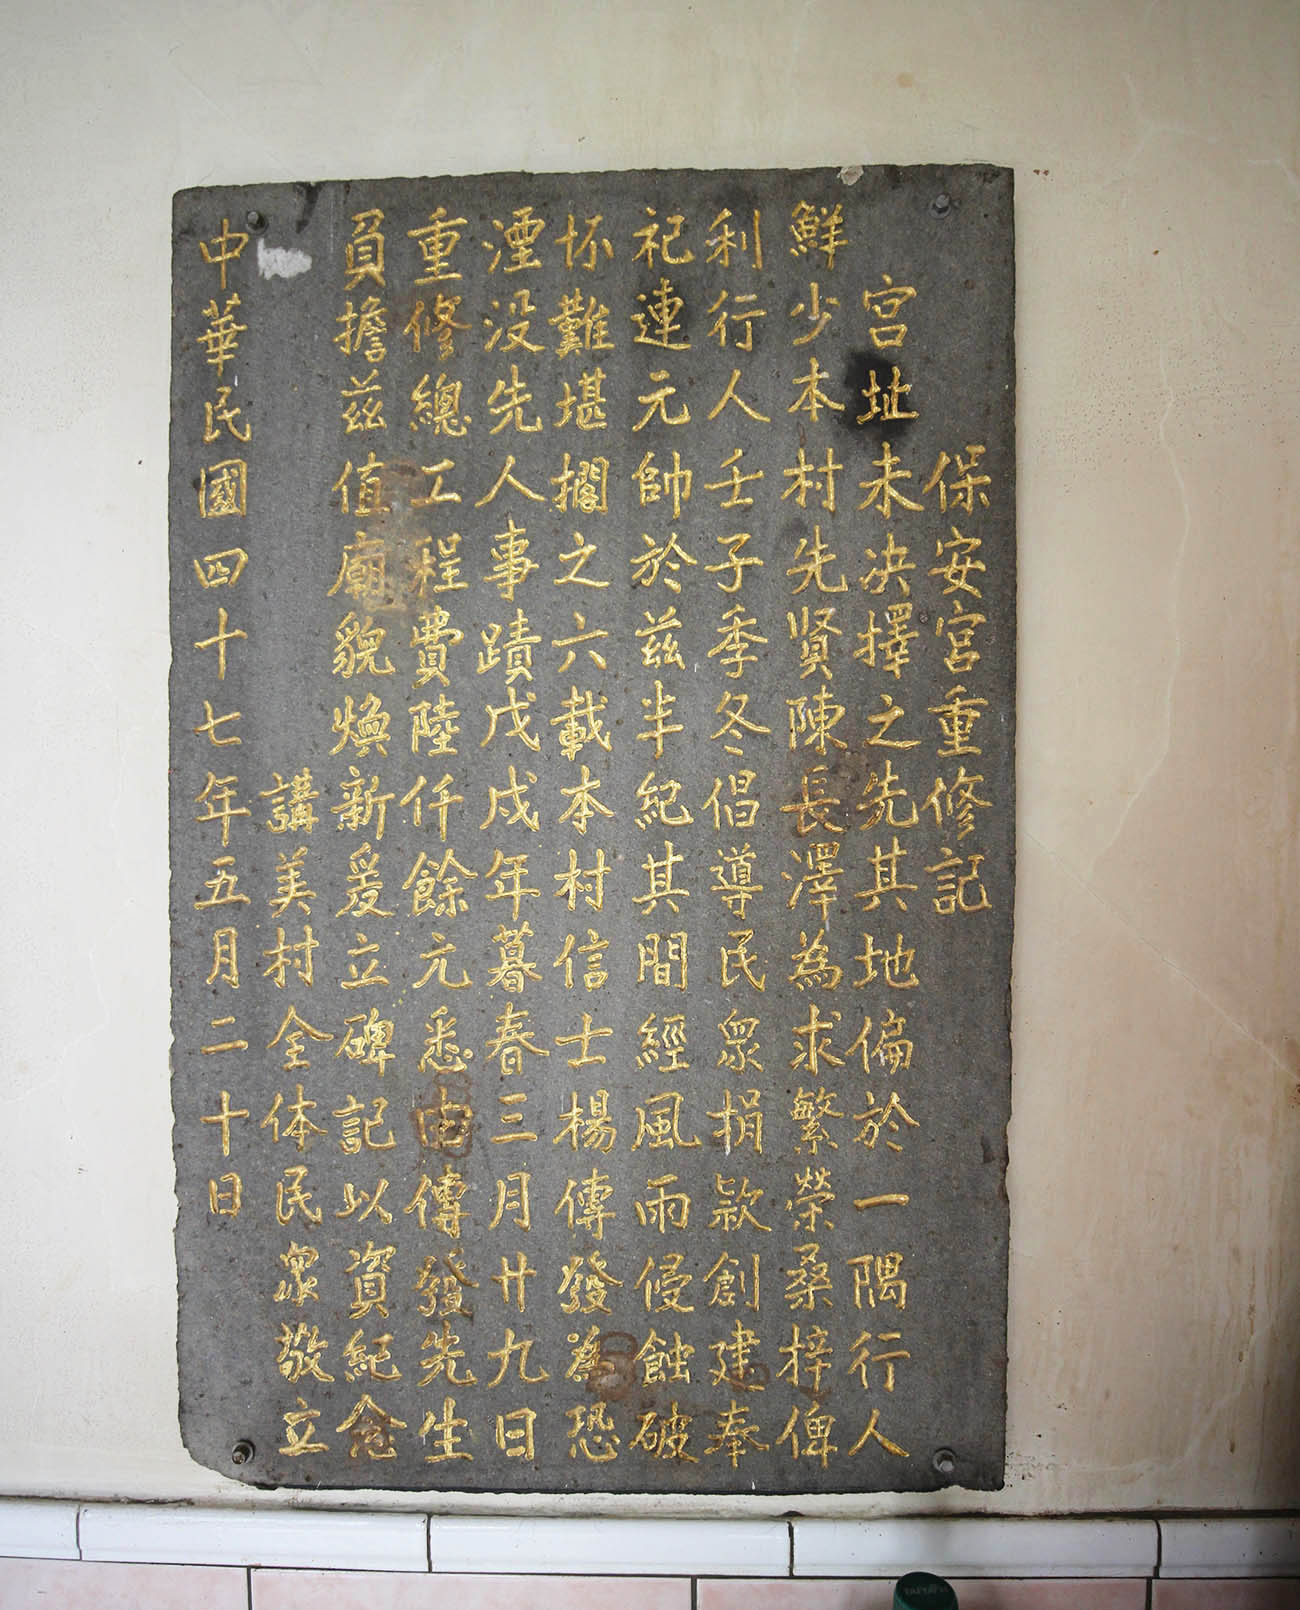 保安宮重修記
宮址未决擇之先其地偏於一隅行人
鮮少本村先賢陳長澤為求繁榮桑梓俾
利行人壬子季冬倡導民眾捐款創建奉
祀連元帥於茲半紀其間經風雨侵蝕破
坏難堪擱之六載本村信士楊傳發為恐
湮没先人事蹟戊戌年暮春三月廿九日
重修總工程費陸仟餘元悉由傳發先生
負擔茲值廟貌煥新爰立碑記以資紀念
講美村全体民眾敬立
中華民國四十七年五月二十日